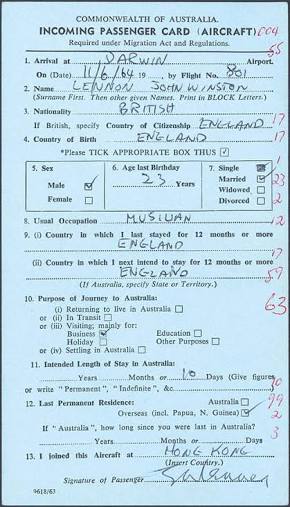 COMMONWEALTH OF AUSTRALIA.
INCOMING PASSENGER CARD (AIRCRAFT) 004
Required under Migration Act and Regulations. 55
1. Arrival at DARWIN Airport.
On (Date) 11/6/64 19 , by Flight No. 801
2. Name LENNON JOHN WINSTON
(Surname First. Then other given Names. Print in BLOCK Letters.)
3. Nationality BRITISH
If British, specify Country of Citizenship ENGLAND 17
4. Country of Birth ENGLAND 17
*Please TICK APPROPRIATE BOX THUS ✓
5. Sex 6. Age last Birthday 7. Single 1
Male ✓ 23 Years Married ✓ 23
Female Widowed
Divorced 2
8. Usual Occupation MUSICIAN
9. (i) Country in which I last stayed for 12 months or more
ENGLAND 17
(ii) Country in which I next intend to stay for 12 months or more
ENGLAND 59
(If Australia, specify State or Territory.)
10. Purpose of Journey to Australia: 63
(i) Returning to live in Australia
or (ii) In Transit
or (iii) Visiting; mainly for:
Business ✓ Education
Holiday Other Purposes
or (iv) Settling in Australia
11. Intended Length of Stay in Australia:
Years Months or 10 Days (Give figures)
or write "Permanent", "Indefinite", &c. 10
12. Last Permanent Residence: Australia 99
Overseas (incl. Papua, N. Guinea) ✓ 2
If "Australia", how long since you were last in Australia? 3
Years Months or Days
13. I joined this Aircraft at HONG KONG
(Insert Country.)
Signature of Passenger
9618/63